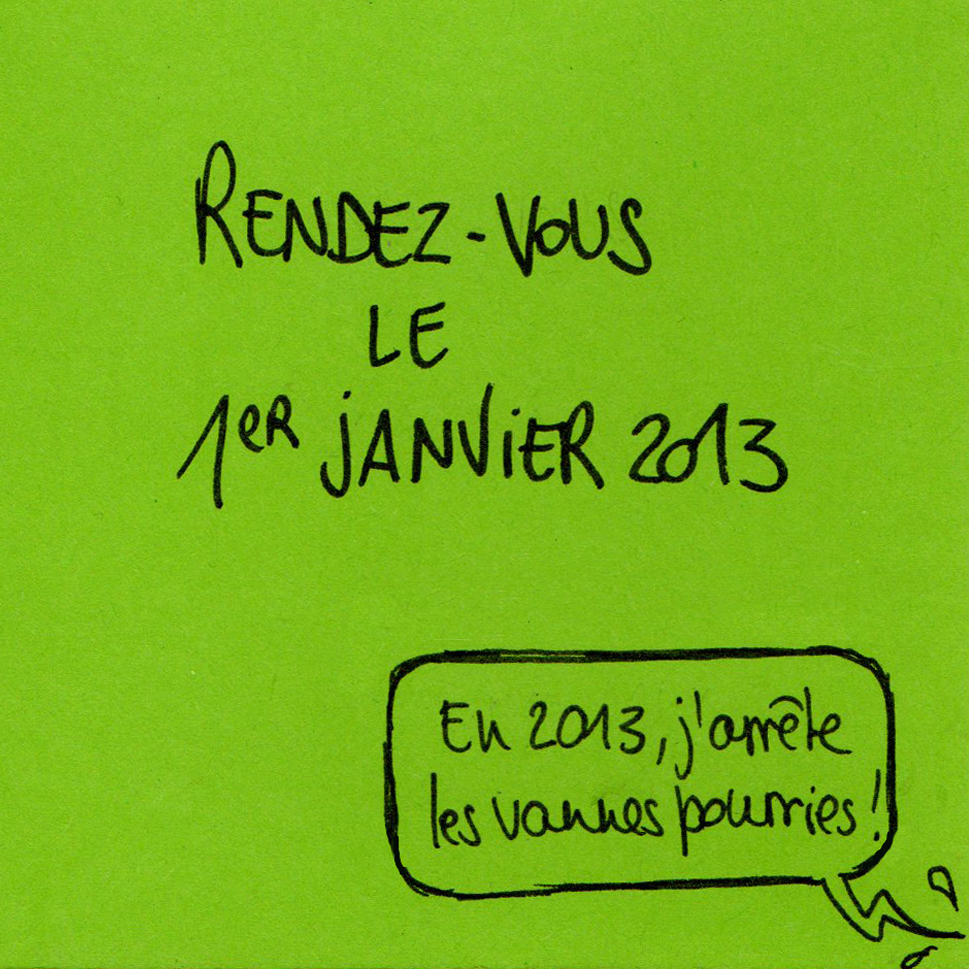 RENDEZ-VOUS
LE
1ER JANVIER 2013
En 2013, j'arrête
les vannes pourries !